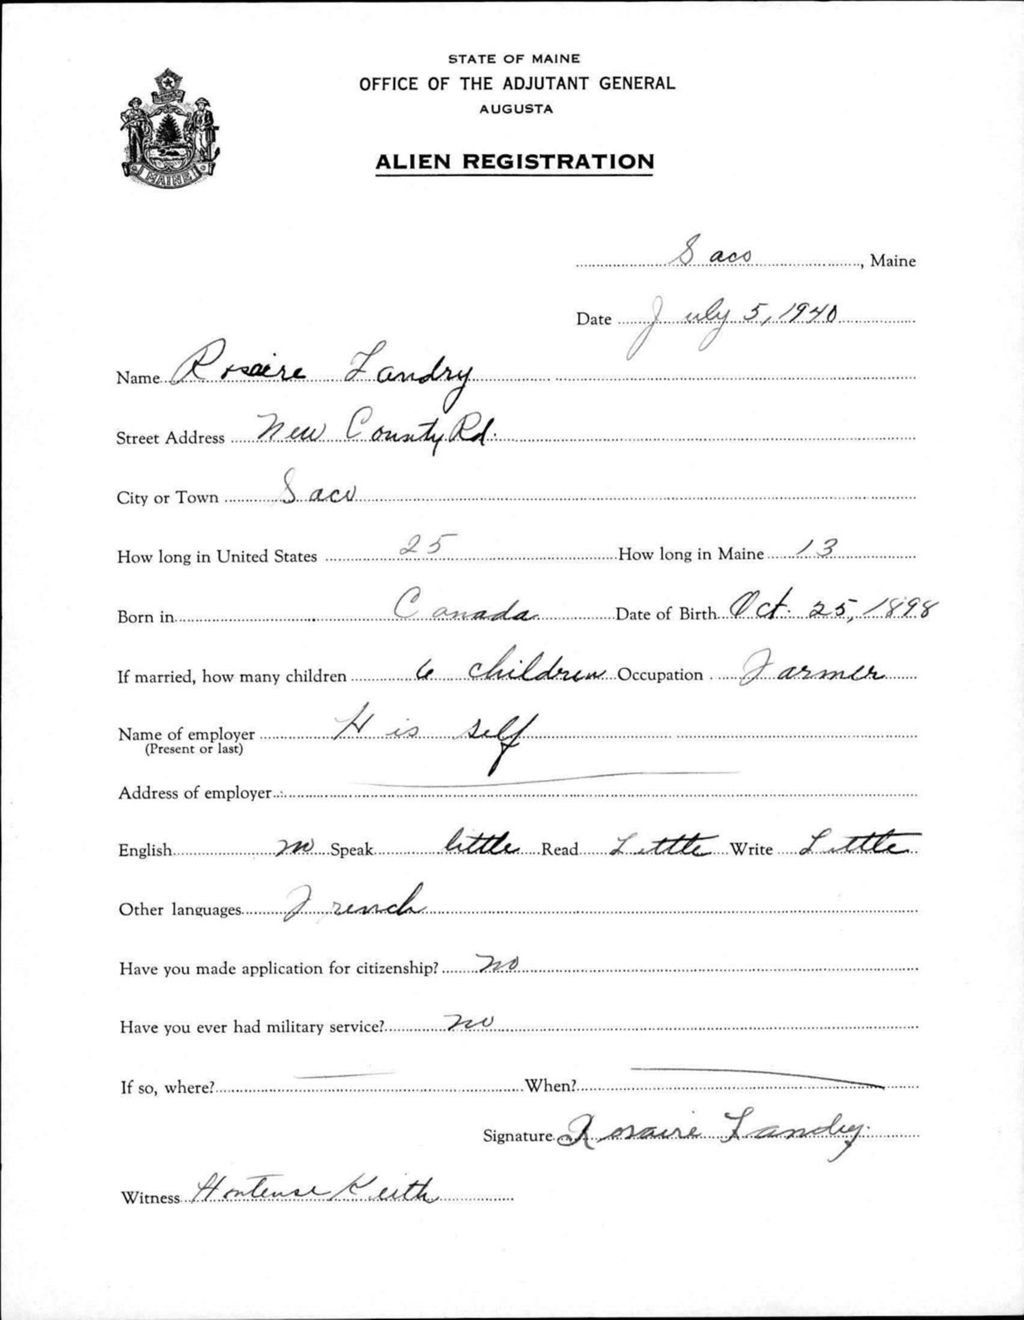 STATE OF MAINE
OFFICE OF THE ADJUTANT GENERAL
AUGUSTA
ALIEN REGISTRATION
MAINE
Saco, Maine
Date July 5, 1940
Name Rosaire Landry
Street Address New County Rd.
City or Town Saco
How long in United States 25 How long in Maine 13
Born in Canada Date of Birth Oct. 25, 1898
If married, how many children 6 children Occupation Farmer
Name of employer His self
(Present or last)
Address of employer
English no Speak little Read Little Write Little
Other languages French
Have you made application for citizenship? no
Have you ever had military service? no
If so, where? When?
Signature Rosaire Landry.
Witness Hortense Keith